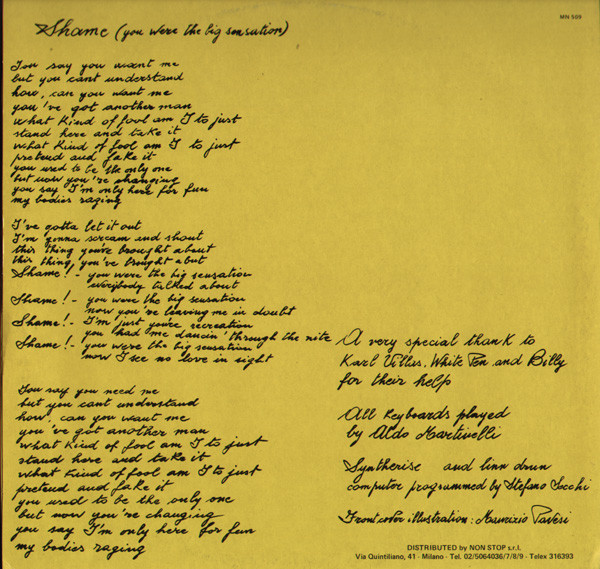 MN 509
Shame (you were the big sensation)
You say you want me
but you cant understand
how, can you want me
you've got another man
what kind of fool am I to just
stand here and take it
what kind of fool am I to just
pretend and fake it
you used to be the only one
but now you're changing
you say I'm only here for fun
my bodies raging
I've gotta let it out
I'm gonna scream and shout
this thing you've brought about
this thing, you've brought about
Shame! - you were the big sensation
everybody talked about
Shame! - you were the big sensation
now you're leaving me in doubt
Shame! - I'm just you're recreation
you had me dancin' through the nite
Shame! - you were the big sensation
now I see no love in sight
You say you need me
but you cant understand
how, can you want me
you've got another man
what kind of fool am I to just
stand here and take it
what kind of fool am I to just
pretend and fake it
you used to be the only one
but now you're changing
you say I'm only here for fun
my bodies raging
A very special thank to
Karl Villus, White Pen and Billy
for their help
All keyboards played
by Aldo Martinelli
Syntherise and linn drun
computor programmed by Stefano Secchi
Front cover illustration: Maurizio Pavesi
DISTRIBUTED by NON STOP s.r.l.
Via Quintiliano, 41 - Milano - Tel. 02/5064036/7/8/9 - Telex 316393